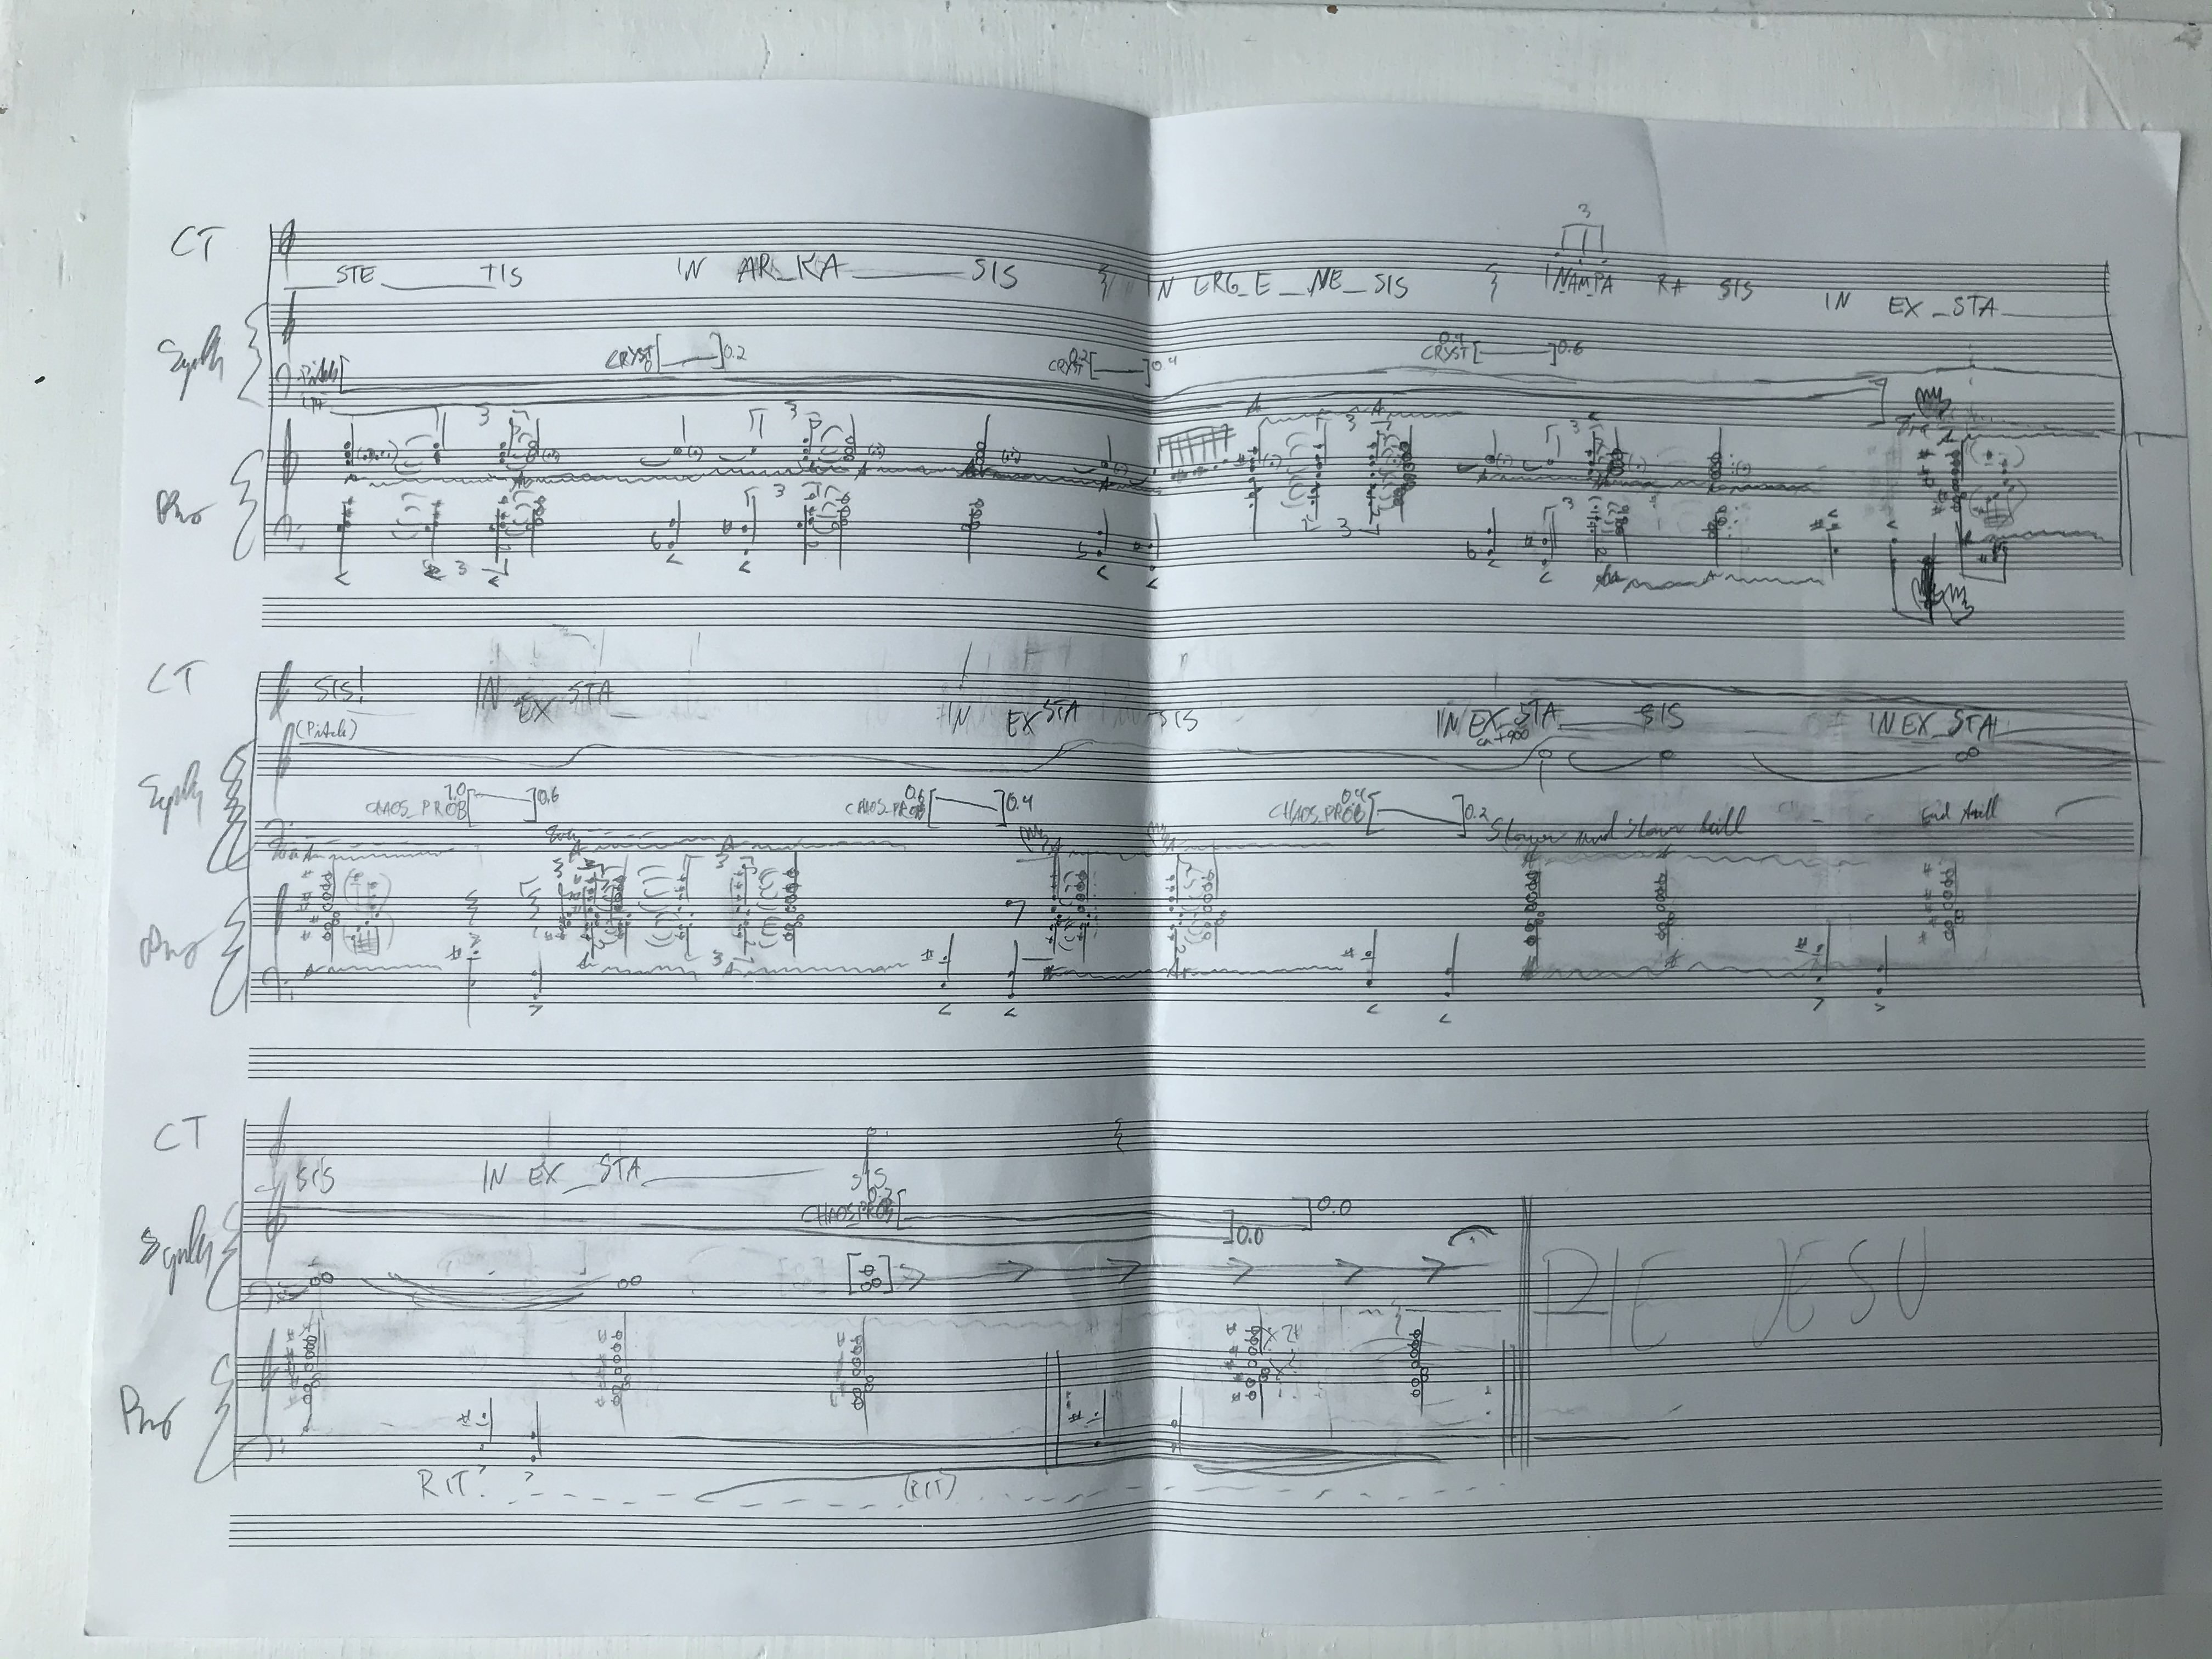 3
CT
STE TIS IN AR_KA SIS IN ERG_E_NE_SIS INAMPA RA SIS IN EX_STA
Synth
CRYST 0 [ ] 0.2 CRYST 0.2 [ ] 0.4 CRYST 0.4 [ ] 0.6
Pitch [
3 3 3 3
Pno
3 3 3
3
CT
SIS! IN EX STA IN EX STA SIS IN EX_STA SIS IN EX_STA
(Pitch)
Synth
CHAOS_PROB 1.0 [ ] 0.6 CHAOS_PROB 0.6 [ ] 0.4 CHAOS_PROB 0.4 [ ] 0.2 Slower and slower trill End trill
3
Pno
3
CT
SIS IN EX_STA SIS
CHAOS_PROB [ ] 0.0
] 0.0
Synth
PIE JESU
Pno
RIT. (RIT)